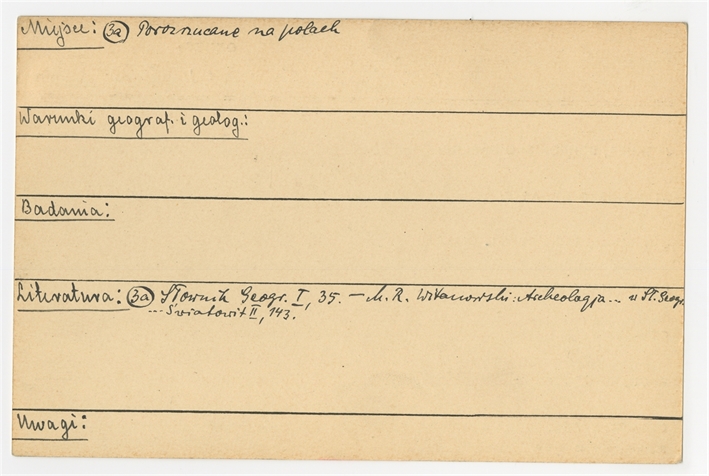 Miejsce: 3a Porozrzucane na polach
Warunki geograf. i geolog.:
Badania:
Literatura: 3a Słownik Geogr. I, 35. — M. R. Witanowski: Archeologja... w Sł. Geogr.
... Światowit II, 143.
Uwagi: